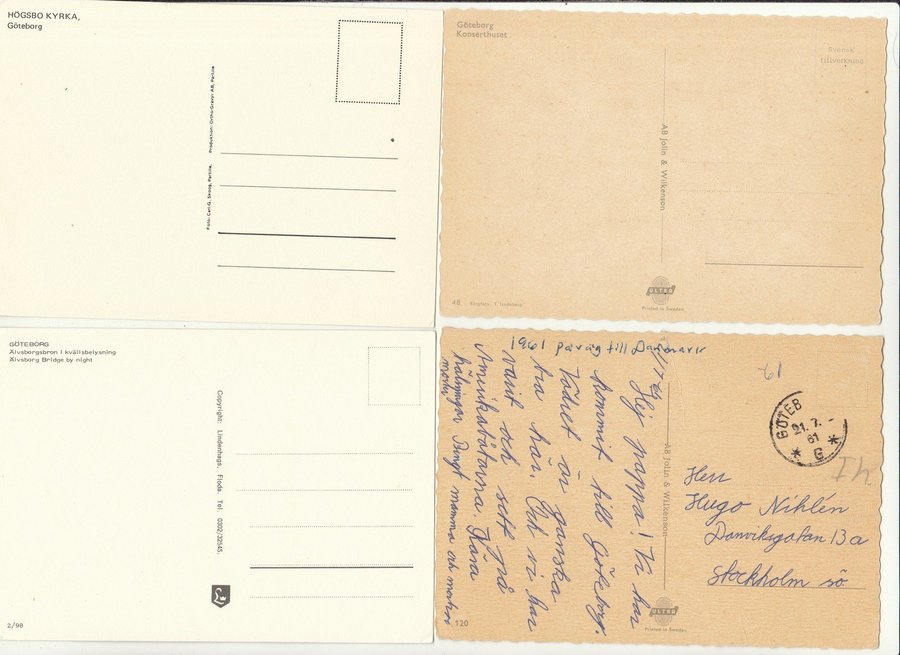 HÖGSBO KYRKA,
Göteborg
Foto: Carl-G. Skoog, Partille. Produktion: Ortho-Gravyr AB, Partille
Göteborg
Konserthuset
Svensk
tillverkning
AB Jolin & Wilkenson
48
Färgfoto: T. Lindeberg
ULTRA
Printed in Sweden
GÖTEBORG
Älvsborgsbron i kvällsbelysning
Älvsborg Bridge by night
Copyright: Lindenhags, Floda. Tel. 0302/32545.
L
2/98
1961 på väg till Danmark
Hej pappa! Vi har
kommit till Göteborg.
Vädret är ganska
bra här. Och vi har
varit och sett på
Amerikabåtarna. Kära
hälsningar Bengt mamma och
61
GÖTEB
21.7.
61
G
AB Jolin & Wilkenson
Herr
Hugo Nihlén
Danviksgatan 13 a
Stockholm sö
120
ULTRA
Printed in Sweden